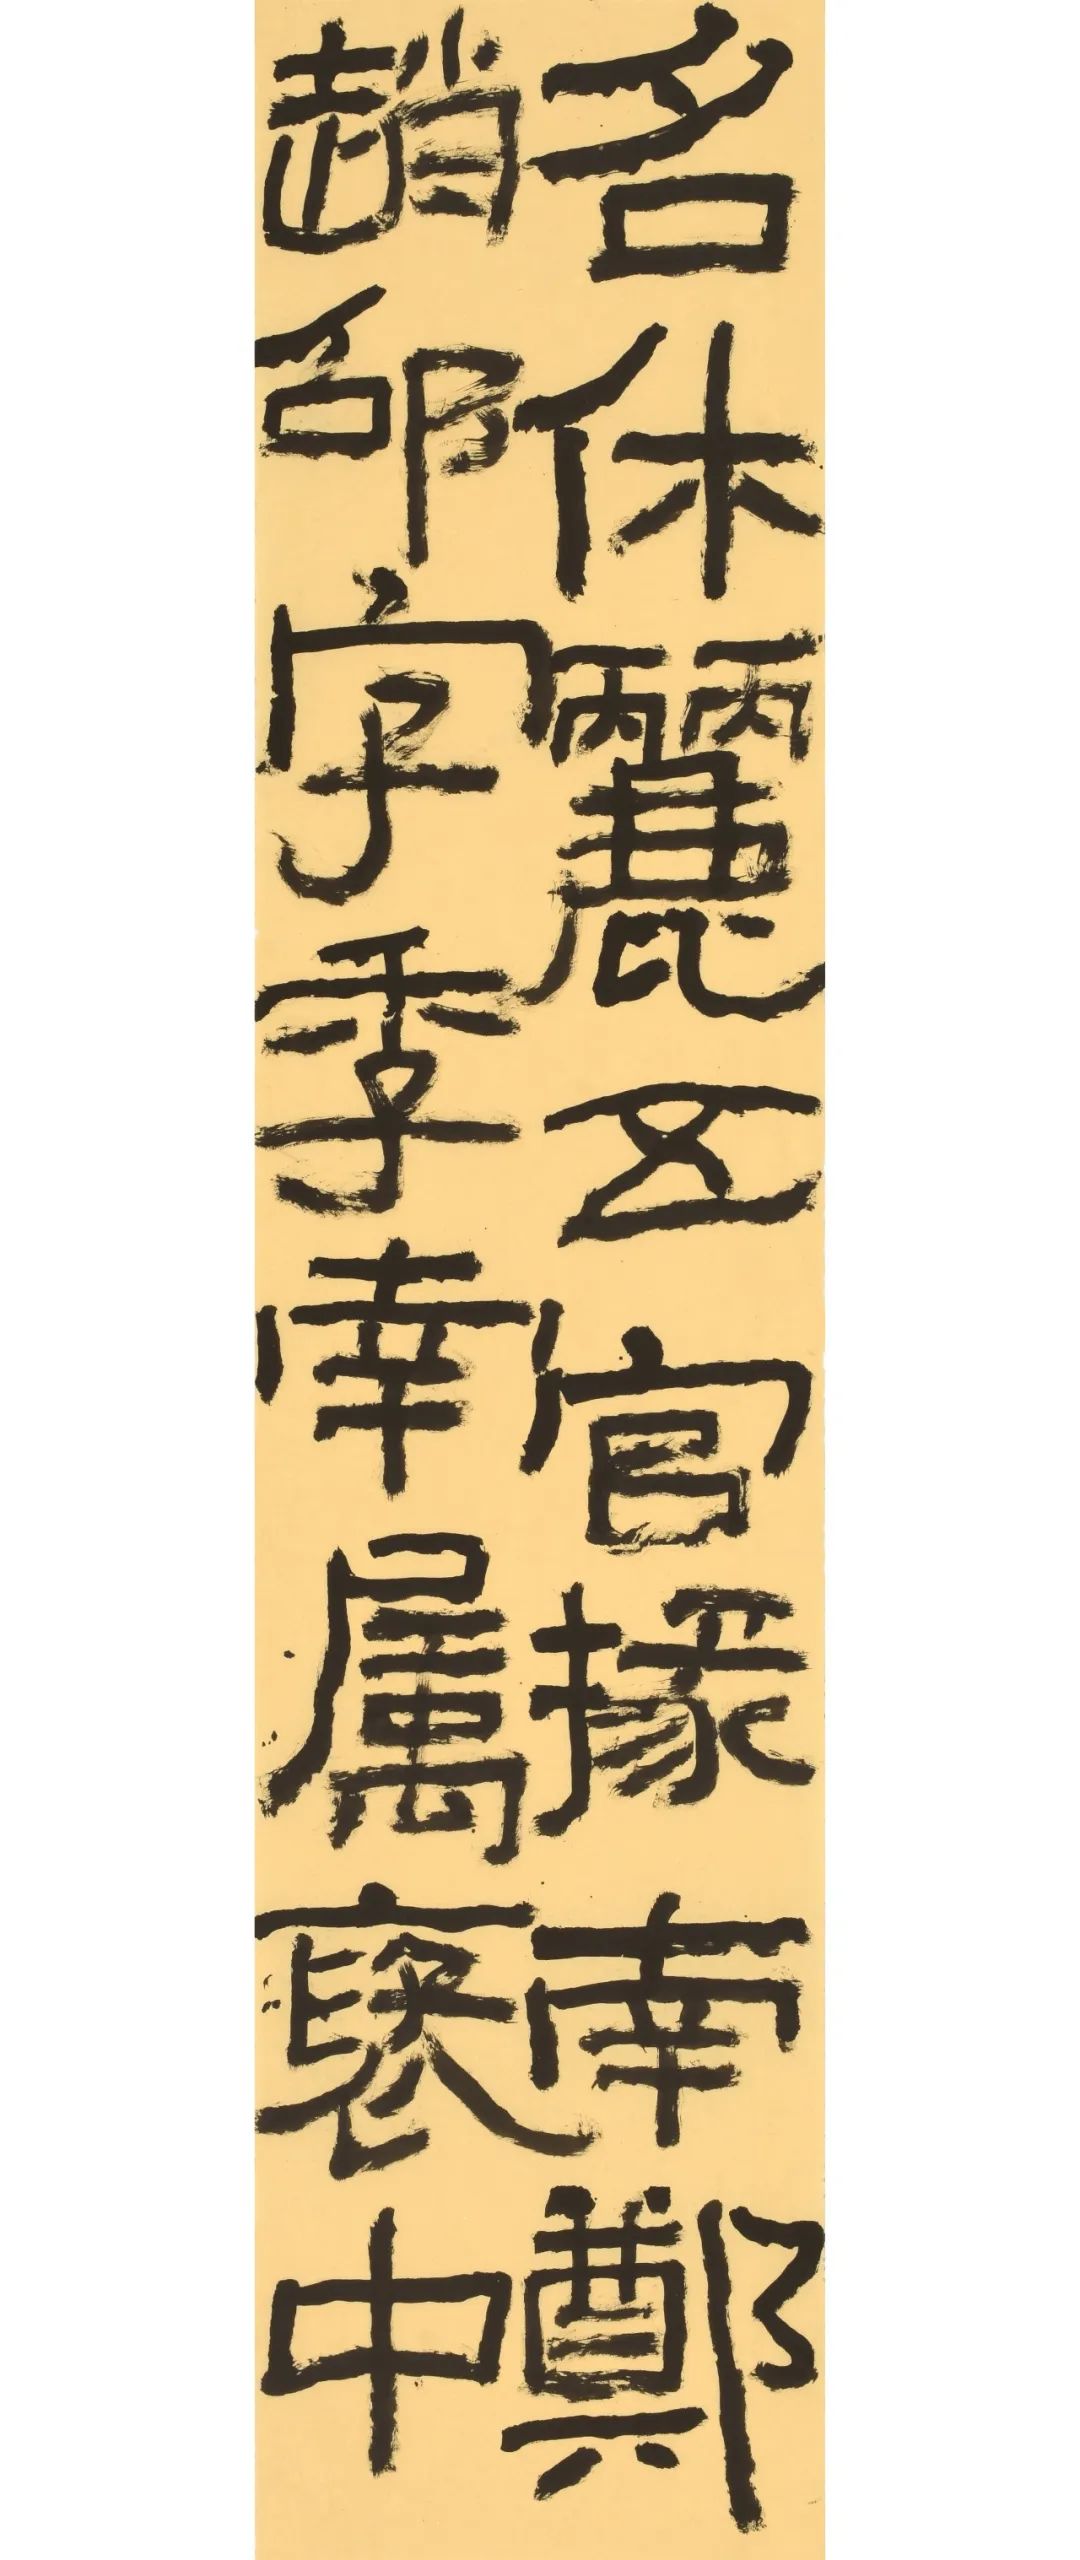 名休麗五官掾南鄭
趙邵字季南属褒中